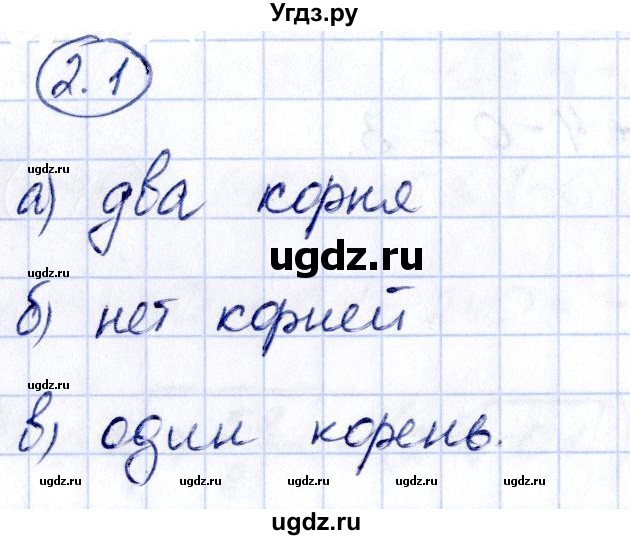 Угдз.ру
2.1
ugdz.ru ugdz.ru
а) два корня
ugdz.ru
ugdz.ru
б) нет корней
ugdz.ru
в) один корень.
ugdz.ru ugdz.ru ugdz.ru
ugdz.ru